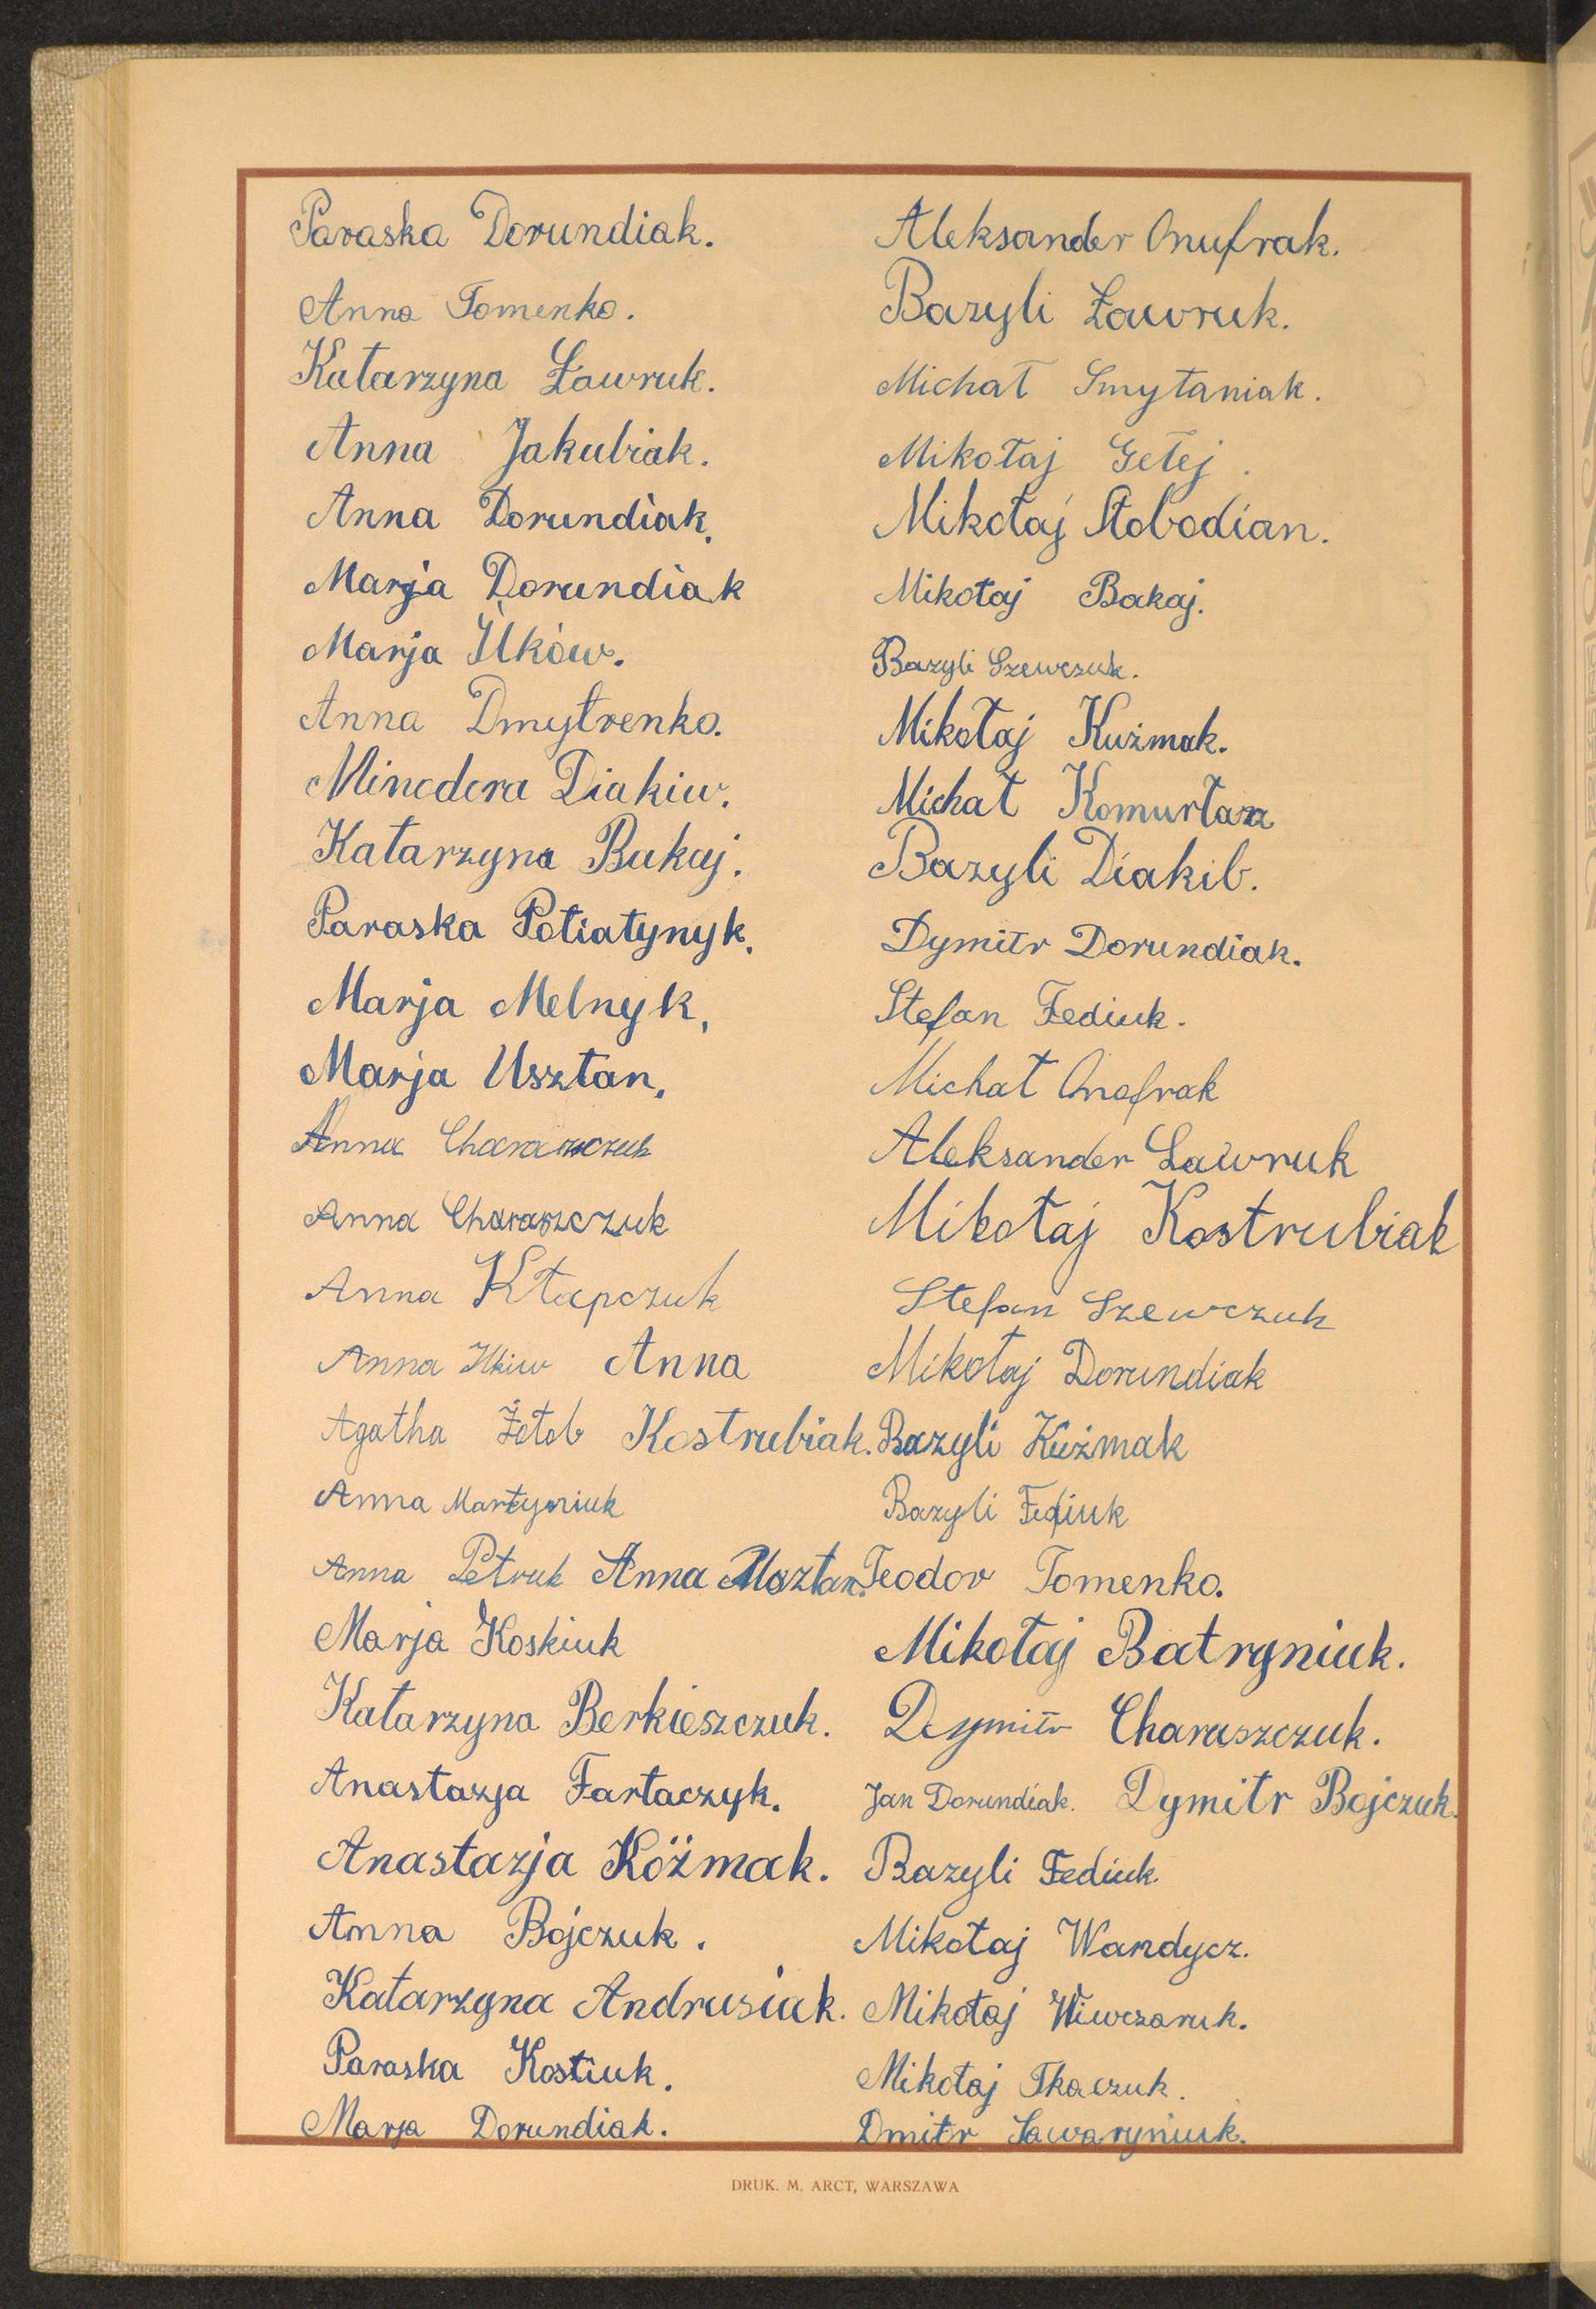 Paraska Dorundiak.
Anna Tomenko.
Katarzyna Ławruk.
Anna Jakubiak.
Anna Dorundiak.
Marja Dorundiak
Marja Ilków.
Anna Dmytrenko.
Minodora Diakiw.
Katarzyna Bakaj.
Paraska Potiatynyk.
Marja Melnyk.
Marja Usztan.
Anna Charaszczuk
Anna Charaszczuk
Anna Kłapczuk
Anna Ilkiw Anna
Agatha Żołob Kostrubiak.
Anna Martyniuk
Anna Petruk Anna
Marja Koskiuk
Katarzyna Berkieszczuk.
Anastazja Fartaczyk.
Anastazja Kóżmak.
Anna Bojczuk.
Katarzyna Andrusiak.
Paraska Kostiuk.
Marja Dorundiak.
Aleksander Onufrak.
Bazyli Ławruk.
Michał Smytaniak.
Mikołaj Gełej.
Mikołaj Słobodian.
Mikołaj Bakaj.
Bazyli Szewczuk.
Mikołaj Kuźmak.
Michał Komurłan
Bazyli Diakib.
Dymitr Dorundiak.
Stefan Fediuk.
Michał Onofrak
Aleksander Ławruk
Mikołaj Kostrubiak
Stefan Szewczuk
Mikołaj Dorundiak
Bazyli Kuźmak
Bazyli Fediuk
Teodor Tomenko.
Mikołaj Batryniuk.
Dymitr Charaszczuk.
Jan Dorundiak. Dymitr Bojczuk.
Bazyli Fediuk.
Mikołaj Wandycz.
Mikołaj Wiwczaruk.
Mikołaj Tkaczuk.
Dmitr Sawaryniuk.
DRUK. M. ARCT, WARSZAWA